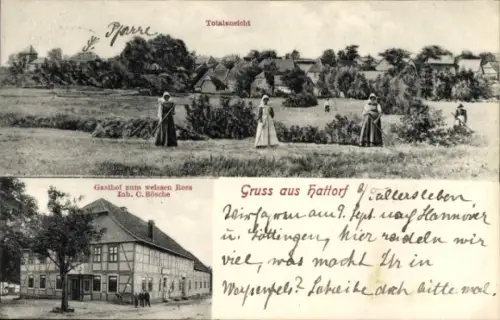 Pfarre
Totalansicht
Gasthof zum weissen Ross
Inh. C. Bösche
Gruss aus Hattorf b/ Fallersleben.
Wir am 7. Sept nach Hannover
u. Göttingen, hier radeln wir
viel, was macht Ihr in
Schreibt doch bitte mal.